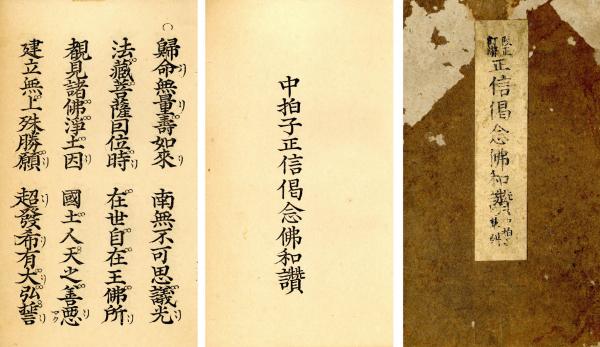 正信偈念佛和讚
中拍子正信偈念佛和讚
歸命無量壽如來 南無不可思議光
法藏菩薩因位時 在世自在王佛所
覩見諸佛淨土因 國土人天之善惡
建立無上殊勝願 超發希有大弘誓